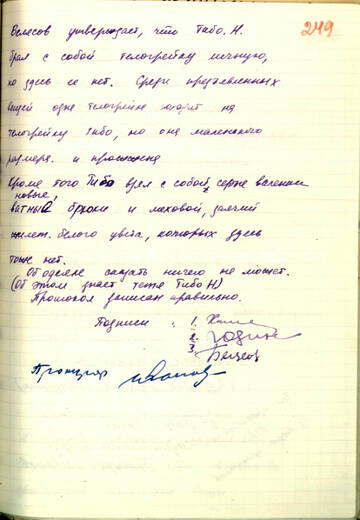 249
Велесов утверждает, что Тибо. Н.
брал с собой телогрейку личную,
но здесь ее нет. Среди предъявленных
вещей одна телогрейка похожа на
телогрейку Тибо, но она маленького
размера. и
Кроме того Тибо взял с собой серые валенки
новые
ватные брюки и меховой, заячий
жилет. белого цвета, которых здесь
тоже нет.
Об одеяле сказать ничего не может.
(Об этом знает тетя Тибо Н)
Протокол записан правильно.
Подписи : 1.
2.
3.
Прокурор Иванов